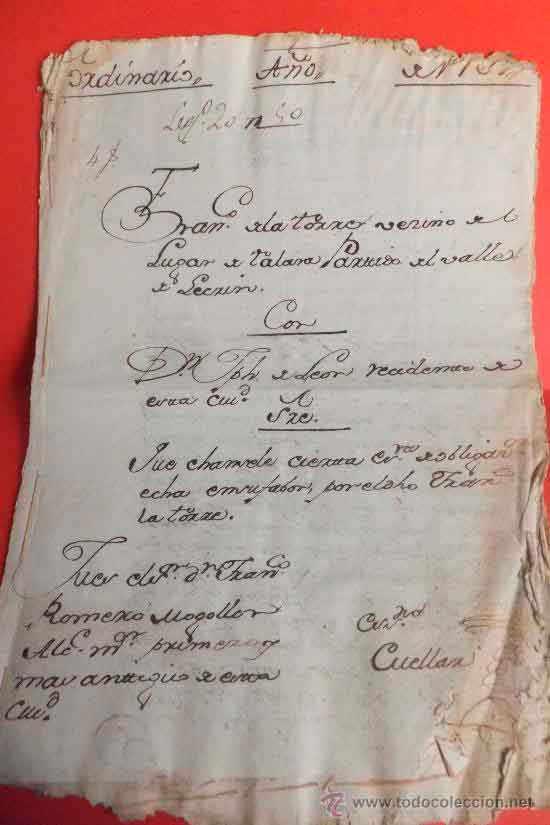 Ordinario. Año. de
Leg.º 20 n 50
Fran.co de la torre vezino del
Lugar de talara Partido del valle
de Lecrin.
Con
D.n Jph. de Leon recidente de
esta Ciu.d
Sre.
Que chansele cierta es.ra de obligaz.n
echa en su fabor, por el dho Fran.co
la torre.
Juez el s.r d.n Fran.co
Romero Mogollon
Alc.e m.r primero y
mas antiguo de esta
Ciu.d
Es.no
Cuellar
www.todocoleccion.net